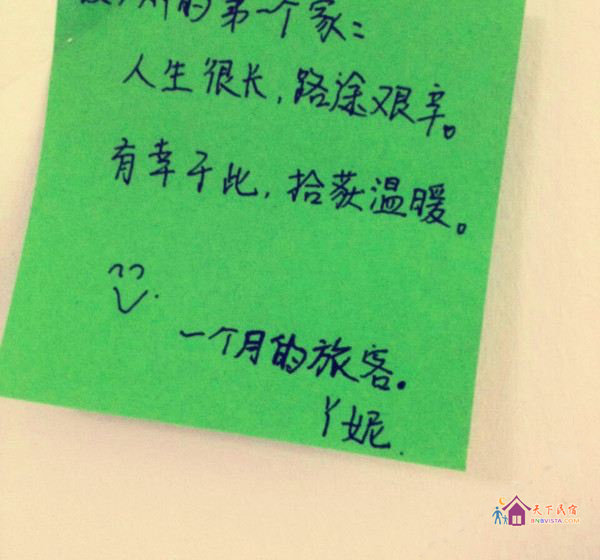 的第一个家:
人生很长,路途艰辛。
有幸于此,拾荻温暖。
一个月的旅客。
丫妮.
天下民宿
BNBVISTA.COM